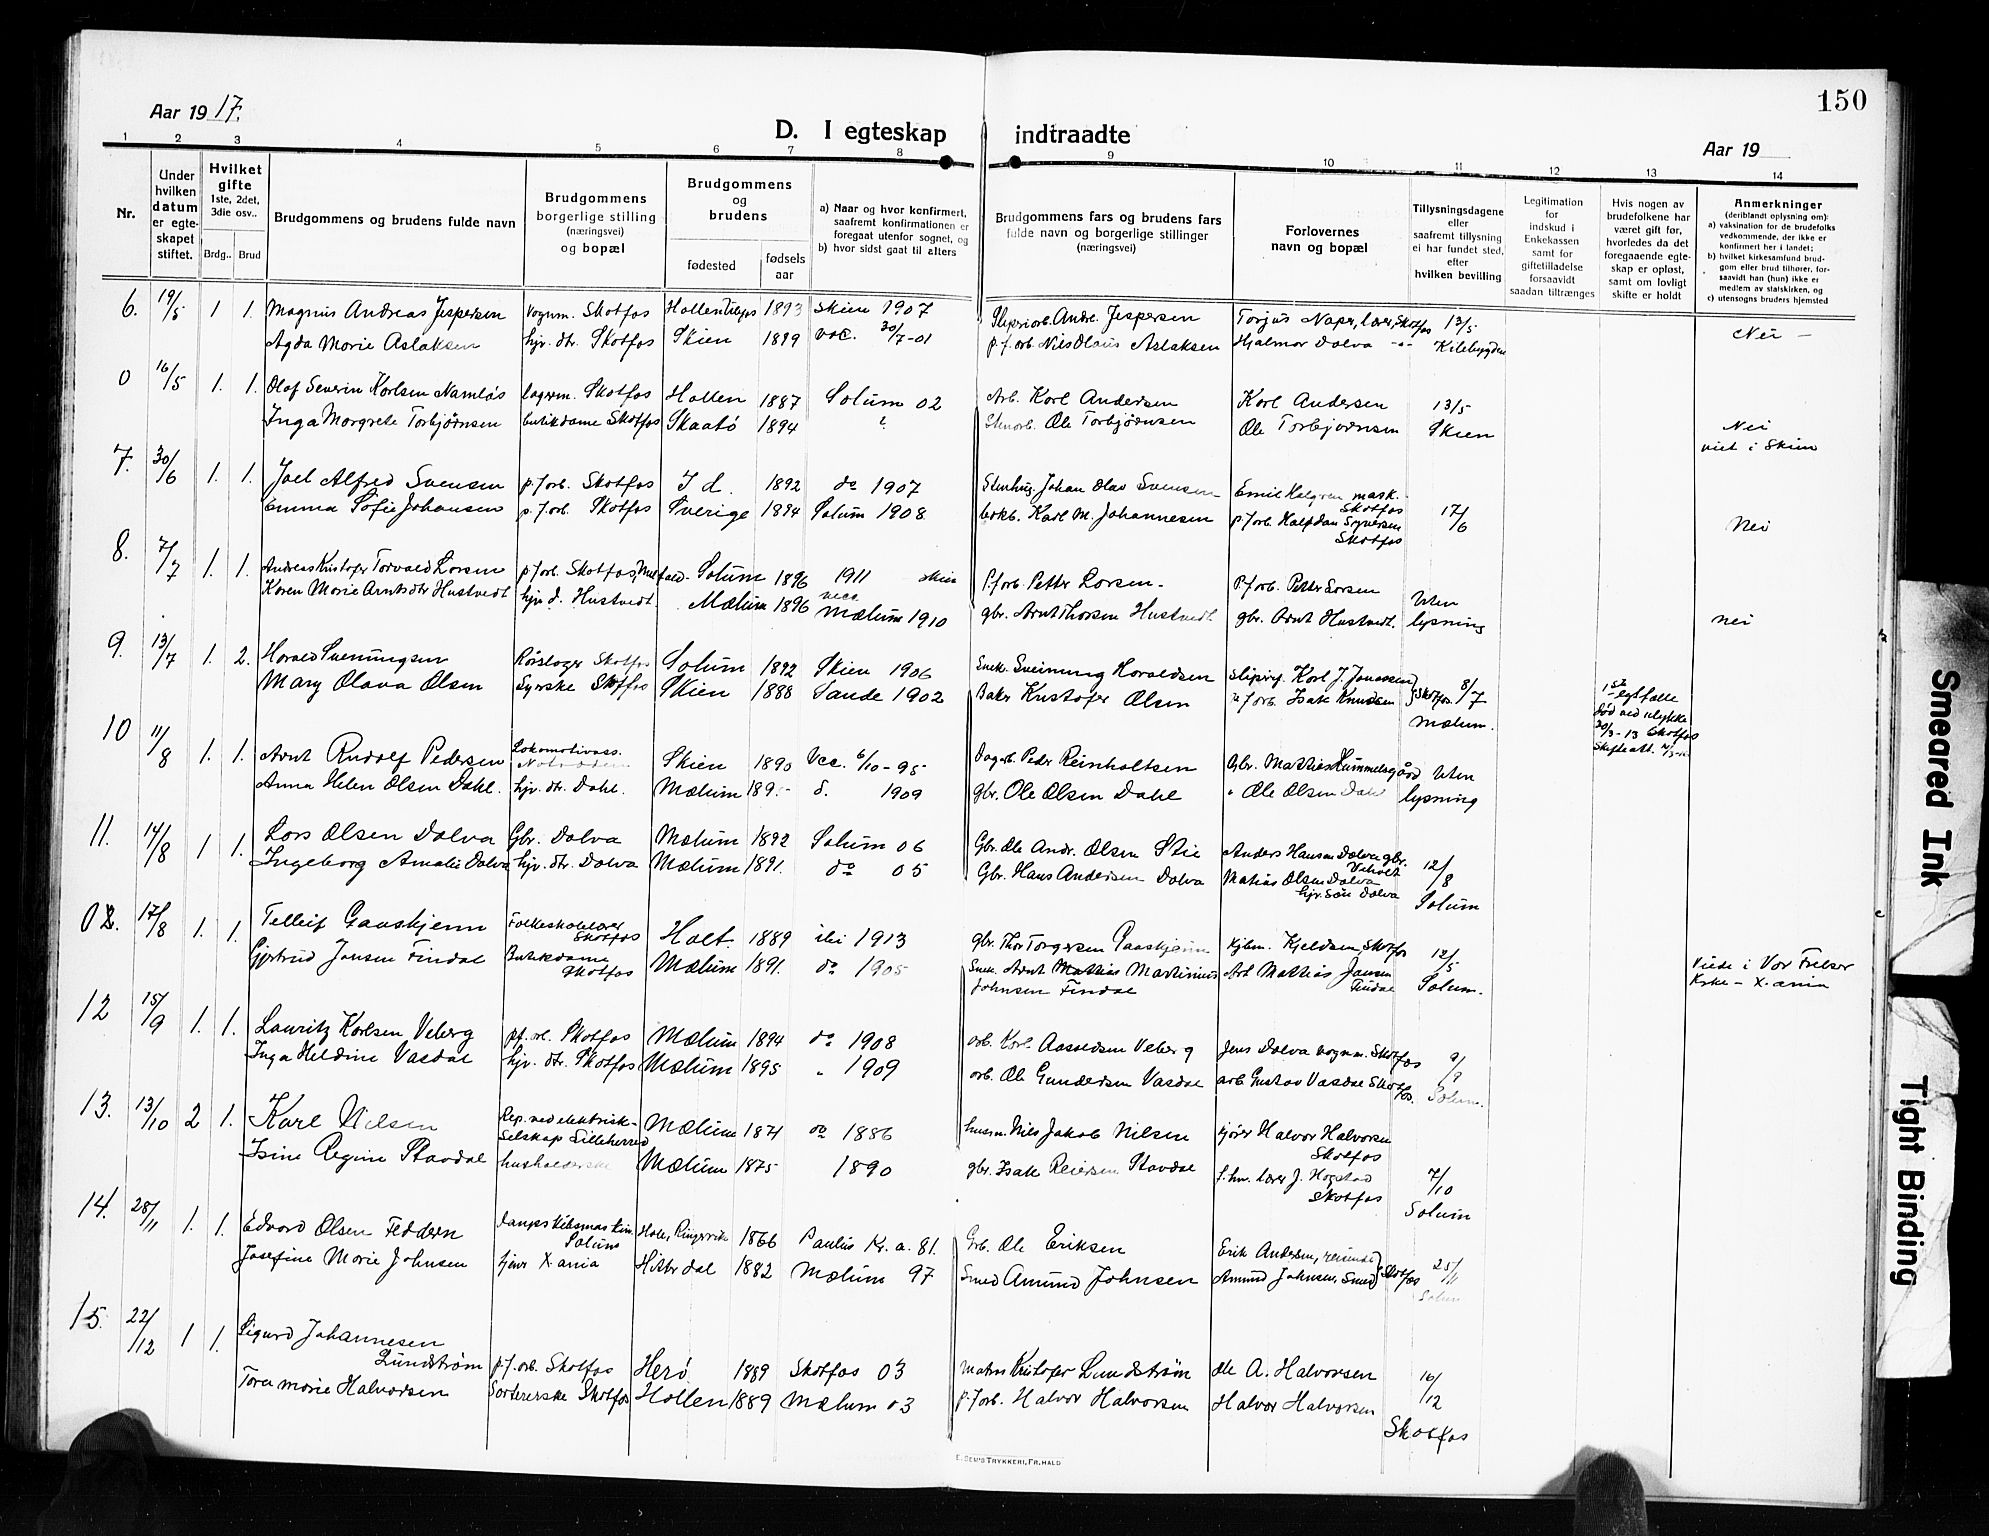 150
Aar 1917.
D. I egteskap indtraadte
Aar 19
1 2 3 4 5 6 7 8 9 10 11 12 13 14
Nr.
Under hvilken datum er egteskapet stiftet.
Hvilket gifte 1ste, 2det, 3die osv..
Brdg.. Brud
Brudgommens og brudens fulde navn
Brudgommens borgerlige stilling (næringsvei) og bopæl
Brudgommens og brudens
fødested
fødselsaar
a) Naar og hvor konfirmert, saafremt konfirmationen er foregaat utenfor sognet, og
b) hvor sidst gaat til alters
Brudgommens fars og brudens fars fulde navn og borgerlige stillinger (næringsvei)
Forlovernes navn og bopæl
Tillysningsdagene eller saafremt tillysning ei har fundet sted, efter hvilken bevilling
Legitimation for indskud i Enkekassen samt for giftetilladelse forsaavidt saadan tiltrænges
Hvis nogen av brudefolkene har været gift før, hvorledes da det foregaaende egteskap er opløst, samt om lovligt skifte er holdt
Anmerkninger (deriblandt oplysning om):
a) vaksination for de brudefolks vedkommende, der ikke er konfirmert her i landet;
b) hvilket kirkesamfund brudgom eller brud tilhører, forsaavidt han (hun) ikke er medlem av statskirken, og
c) utensogns bruders hjemsted
6. 19/5 1 1. Magnus Andreas Jespersen Vognm. Skotfos Hollen 1893 Skien 1907 Sliperiarb. Andr. Jespersen Torjus Naper, lærer, Skotfos 13/5
Agda Marie Aslaksen hjv. dtr. Skotfos Skien 1899 vac. 30/7-01 p.f. arb. Nils Olaus Aslaksen Hjalmar Dalva -"- Kilebygden Nei -
0 16/5 1. 1. Olaf Severin Karlsen Namløs lagerm. Skotfos Hollen 1887 Solum 02 Arb. Karl Andersen Karl Andersen 13/5
Inga Margrete Torbjørnsen butikdame Skotfos Skaatø 1894 " Stenarb. Ole Torbjørnsen Ole Torbjørnsen Skien Nei
viet i Skien
7. 30/6 1. 1. Joel Alfred Svensen p.f. arb. Skotfos Id. 1892 do 1907 Stenhug. Johan Olav Svensen Emil Halgren mask. Skotfos 17/6
Emma Sofie Johansen p.f. arb. Skotfos Sverige 1894 Solum 1908 Karl M. Johannesen p.f. arb. Halfdan Syversen Skotfos Nei
8. 7/7 1. 1. Andreas Kristofer Torvald Larsen p.f. arb. Skotfos, Solum 1896 1911 Skien P.f. arb. Petter Larsen - P.f. arb. Petter Larsen Uten
Karen Marie Arntsdtr Hustvedt hjv. d. Hustvedt. Mælum 1896 vacc. Mælum 1910 gbr. Arnt Thorsen Hustvedt gbr. Arnt Hustvedt. lysning nei
9. 13/7 1. 2. Harald Sveinungsen Rørlægger Skotfos Solum 1892 Skien 1906 Snek. Sveinung Haraldsen Slipirf. Karl J. Jonassen 8/7
Mary Olava Olsen Syerske Skotfos Skien 1888 Sande 1902 Baker Kristofer Olsen p.f. arb. Isak Knudsen Skotfos Mælum.
1ste egtefælle død ved ulykke 3-13 Skotfos Skifteatt.
10 11/8 1. 1. Arnt Rudolf Pedersen Lokomotivass. Notodden Skien 1890 Vcc. 6/10-95 Dagarb. Peder Reinholtsen Gbr. Mathias Hummelsgård Uten
Anna Helen Olsen Dahl. hjv. dtr. Dahl. Mælum 1895 d. 1909 gbr. Ole Olsen Dahl " Ole Olsen Dahl lysning
11. 14/8 1 1. Lars Olsen Dalva Gbr. Dalva Mælum 1892 Solum 06 Gbr. Ole Andr. Olsen Stie Anders Hansen Dalva gbr. 12/8
Ingeborg Amalie Dalva hjv. dtr. Dalva Mælum 1891. do 05 Gbr. Hans Andersen Dalva Matias Olsen Dalva hjv. søn Dalva Solum
02. 17/8 1. 1. Telleif Gaaskjenn Folkeskolelærer Skotfos Holt. 1889 ibi 1913 gbr. Thor Torgersen Gaaskjenn Kjøbm. Kjeldsen, Skotfos 12/5
Gjertrud Jonsen Findal Butikdame Skotfos Mælum 1891. do 1905 Snek. Arnt Mathias Martinius Johnsen Findal Arb. Mathias Jonsen Findal Solum.
Viede i Vor Frelser Kirke - X.ania
12 15/9 1. 1. Lauritz Karlsen Veberg pf. arb. Skotfos Mælum 1894 do 1908 arb. Karl Aasoldsen Veberg Jens Dalva vognm. Skotfos 9/9
Inga Heldine Vasdal hjv. dtr. Skotfos Mælum 1895 " 1909 arb. Ole Gundersen Vasdal arb. Gustav Vasdal Skotfos. Solum.
13. 13/10 2 1. Karl Nilsen Rep. ved elektrisk-Selskap Lilleherred Mælum 1871 do 1886 husm. Nils Jakob Nilsen kjører Halvor Halvorsen Skotfos
Isine Regine Stavdal husholderske Mælum 1875 1890 gbr. Isak Reiersen Stavdal lærer J. Hogstad Skotfos 7/10 Solum
14. 28/11 1. 1. Edvard Olsen Feddern Solum Hole, Ringerike 1866 Paulus Kr.a. 81. Grb. Ole Eriksen Erik Andersen, 25/11
Josefine Marie Johnsen tjener X.ania Hitterdal 1882 Mælum 97 Smed Amund Johnsen Amund Johnsen, Smed Skotfos Solum
15. 22/12 1 1. Sigurd Johannesen Lundstrøm p.f. arb. Skotfos Herø 1889 Skotfos 03 Matros Kristofer Lundstrøm Ole A. Halvorsen 16/12
Tora Marie Halvorsen Sorterske Skotfos Hollen 1889 Mælum 03 p.f. arb. Halvor Halvorsen Halvor Halvorsen Skotfos
E. SEM'S TRYKKERI, FR.HALD
Smeared Ink
Tight Binding